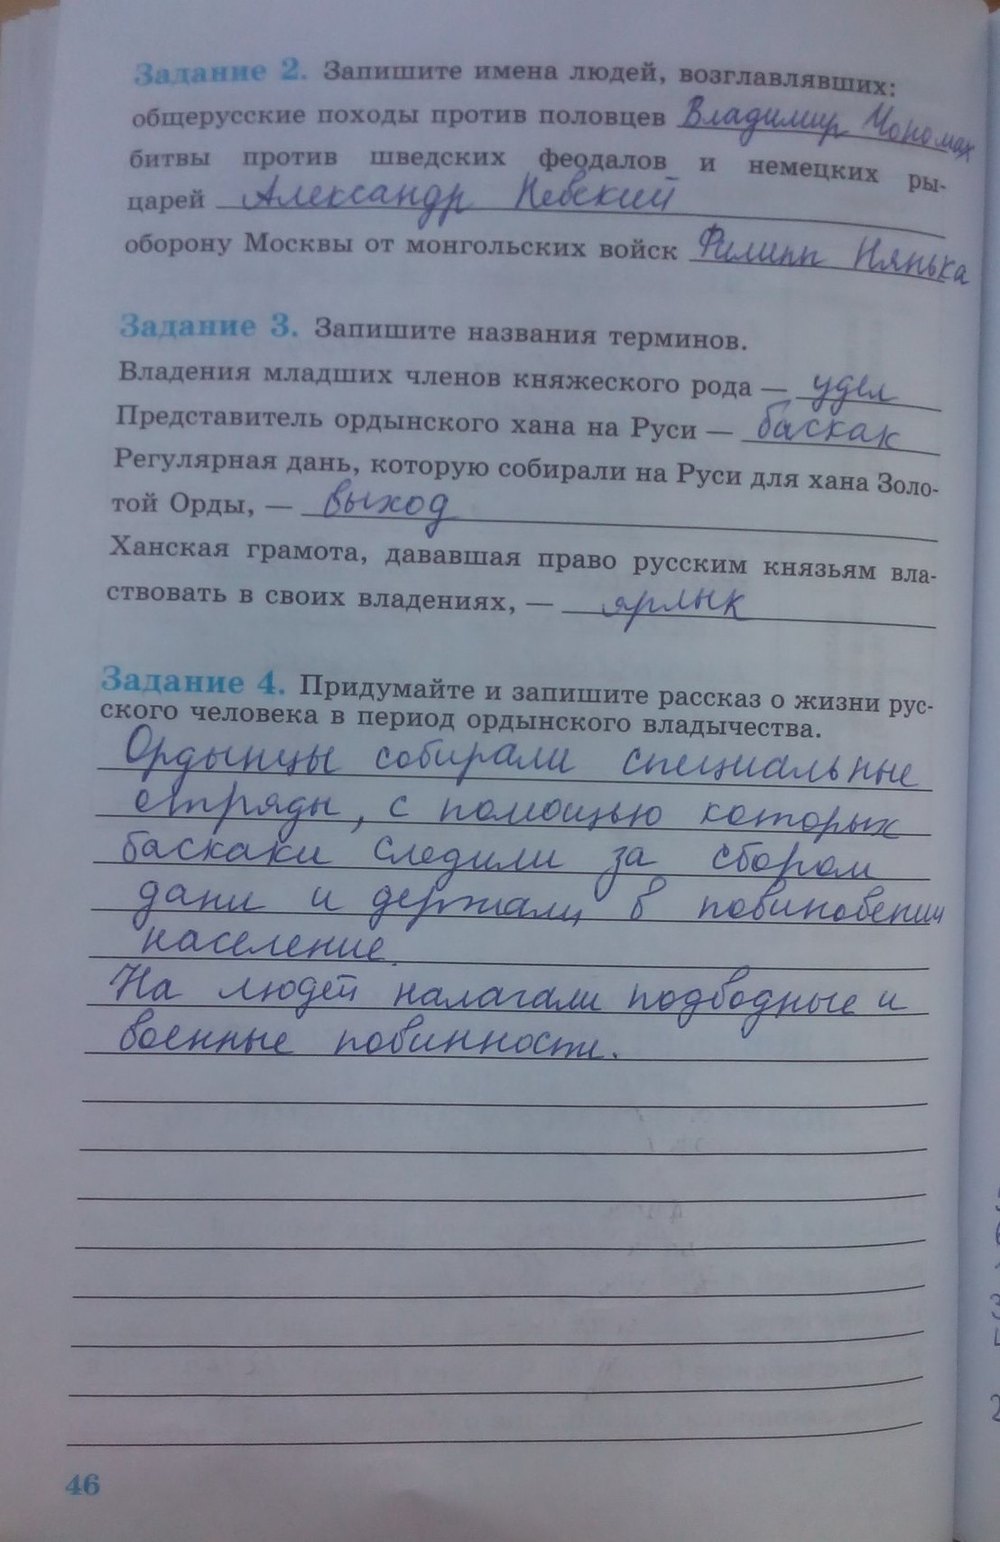 Задание 2. Запишите имена людей, возглавлявших:
общерусские походы против половцев Владимир Мономах
битвы против шведских феодалов и немецких ры-
царей Александр Невский
оборону Москвы от монгольских войск Филипп Нянька
Задание 3. Запишите названия терминов.
Владения младших членов княжеского рода — удел
Представитель ордынского хана на Руси — баскак
Регулярная дань, которую собирали на Руси для хана Золо-
той Орды, — выход
Ханская грамота, дававшая право русским князьям вла-
ствовать в своих владениях, — ярлык
Задание 4. Придумайте и запишите рассказ о жизни рус-
ского человека в период ордынского владычества.
Ордынцы собирали специальные
отряды, с помощью которых
баскаки следили за сбором
дани и держали в повиновении
население.
На людей налагали подводные и
военные повинности.
46